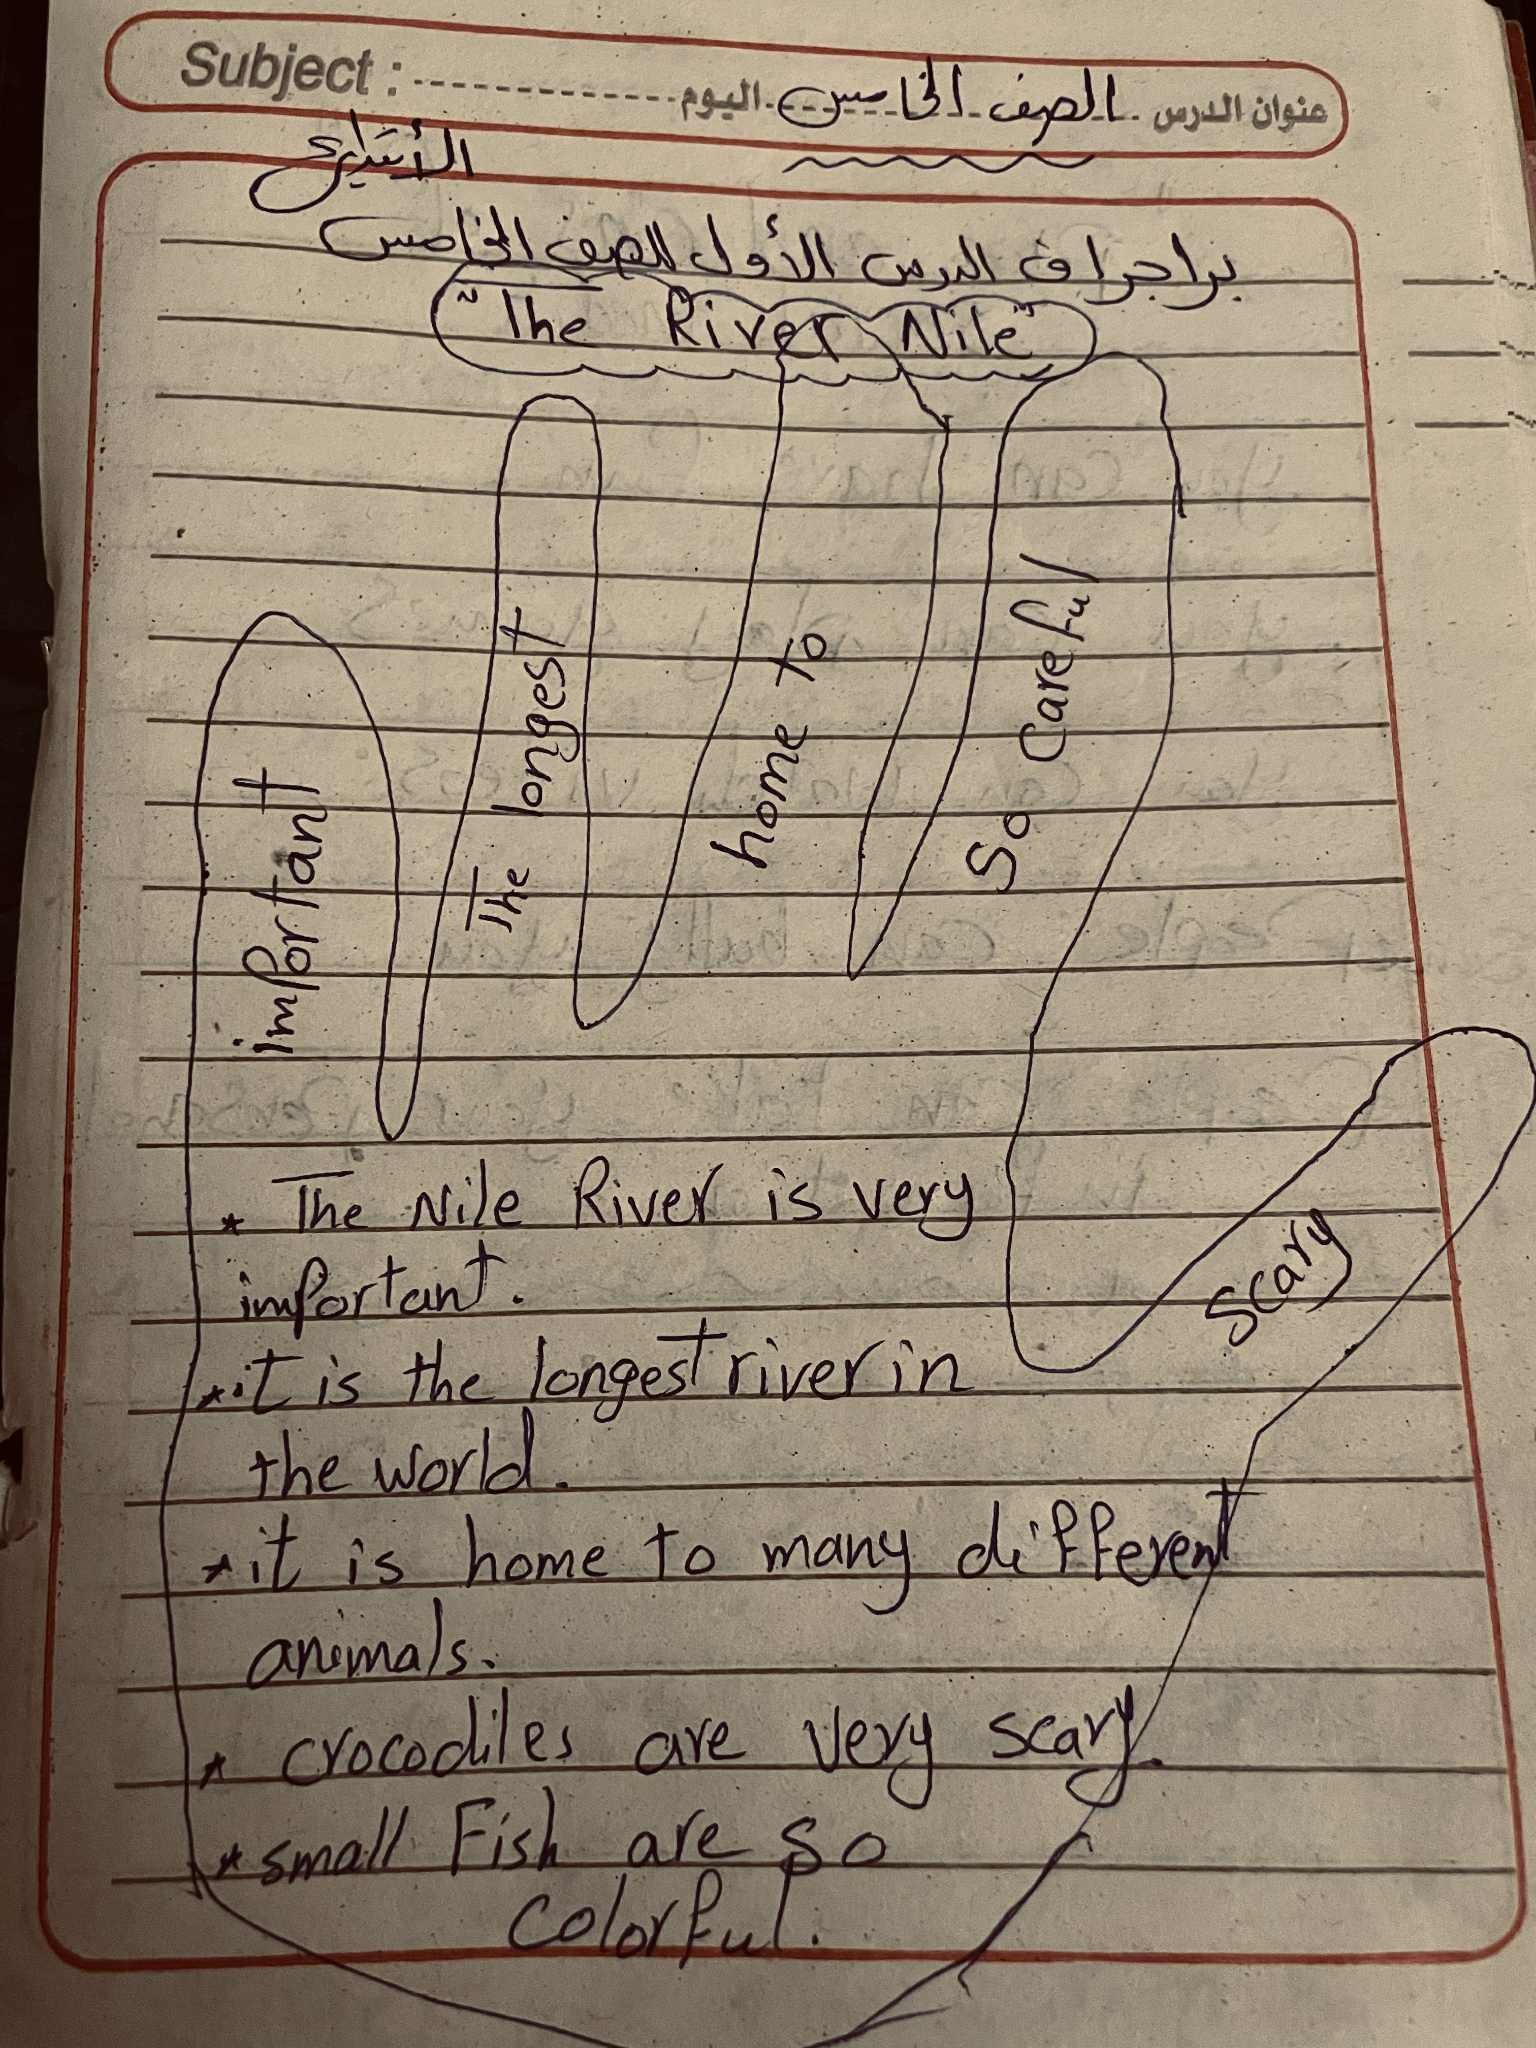 Subject : اليوم الصف الخامس عنوان الدرس
الأبتدائي
براجراف الدرس الأول للصف الخامس
"The River Nile"
important
The longest
home to
So Careful
Scary
* The Nile River is very
important.
* it is the longest river in
the world.
* it is home to many different
animals.
* crocodiles are very scary.
* small Fish are so
Colorful.